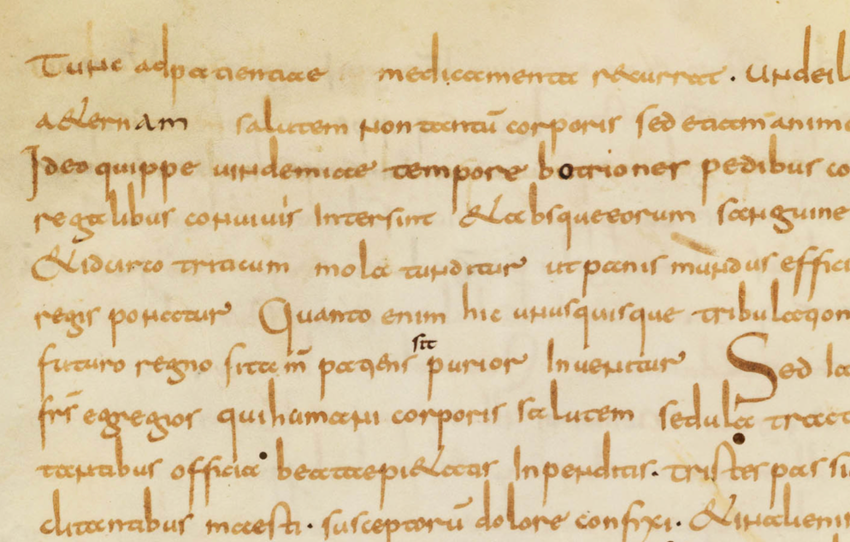 Tunc ad patientiae medicamenta recurrat. Undeil
a&ernam salutem non tantū corporis sed etiam animę
Ideo quippe uindemiae tempore botriones pedibus co
regalibus conuiuiis Intersint &absque eorum sanguine
&idcirco triticum mola tunditur ut panis mundus effici
regis ponatur Quanto enim hic unusquisque tribulation
futuro regno sit tam̄ patiens sit purior Inuenitur Sed
frs̄ egregios qui humani corporis salutem sedula tract
tantibus officia beatae pi&atis Inpenditis. tristes pas
clitantibus maesti. susceptorū dolore confixi. &Inalieni